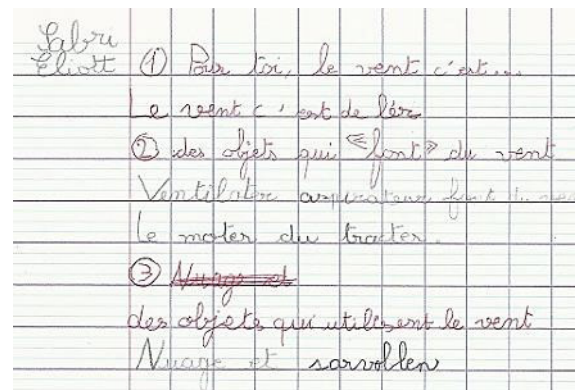 Sabri
Eliott ① Pour toi, le vent c'est...
Le vent c'est de l'ér
② des objets qui «font» du vent
Ventilater aspirateur font du
le moter du tracter.
③ Nuage et
des objets qui utilisent le vent
Nuage et sarvollen